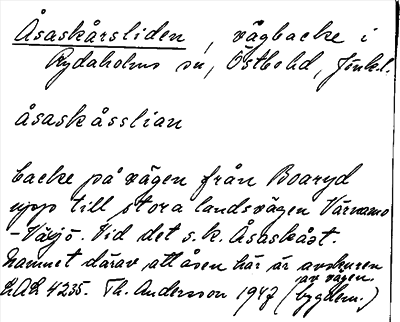 Åsaskårsliden, vägbacke i
Rydaholms sn, Östbo hd, Jönk.l.
åsaskåsslian
backe på vägen från Boaryd
upp till stora landsvägen Värnamo
-Växjö. Vid det s.k. Åsaskåst.
Namnet därav att åsen här är avskuren
av vägen.
LAL 4235. Th. Andersson 1947 (bygdem.)